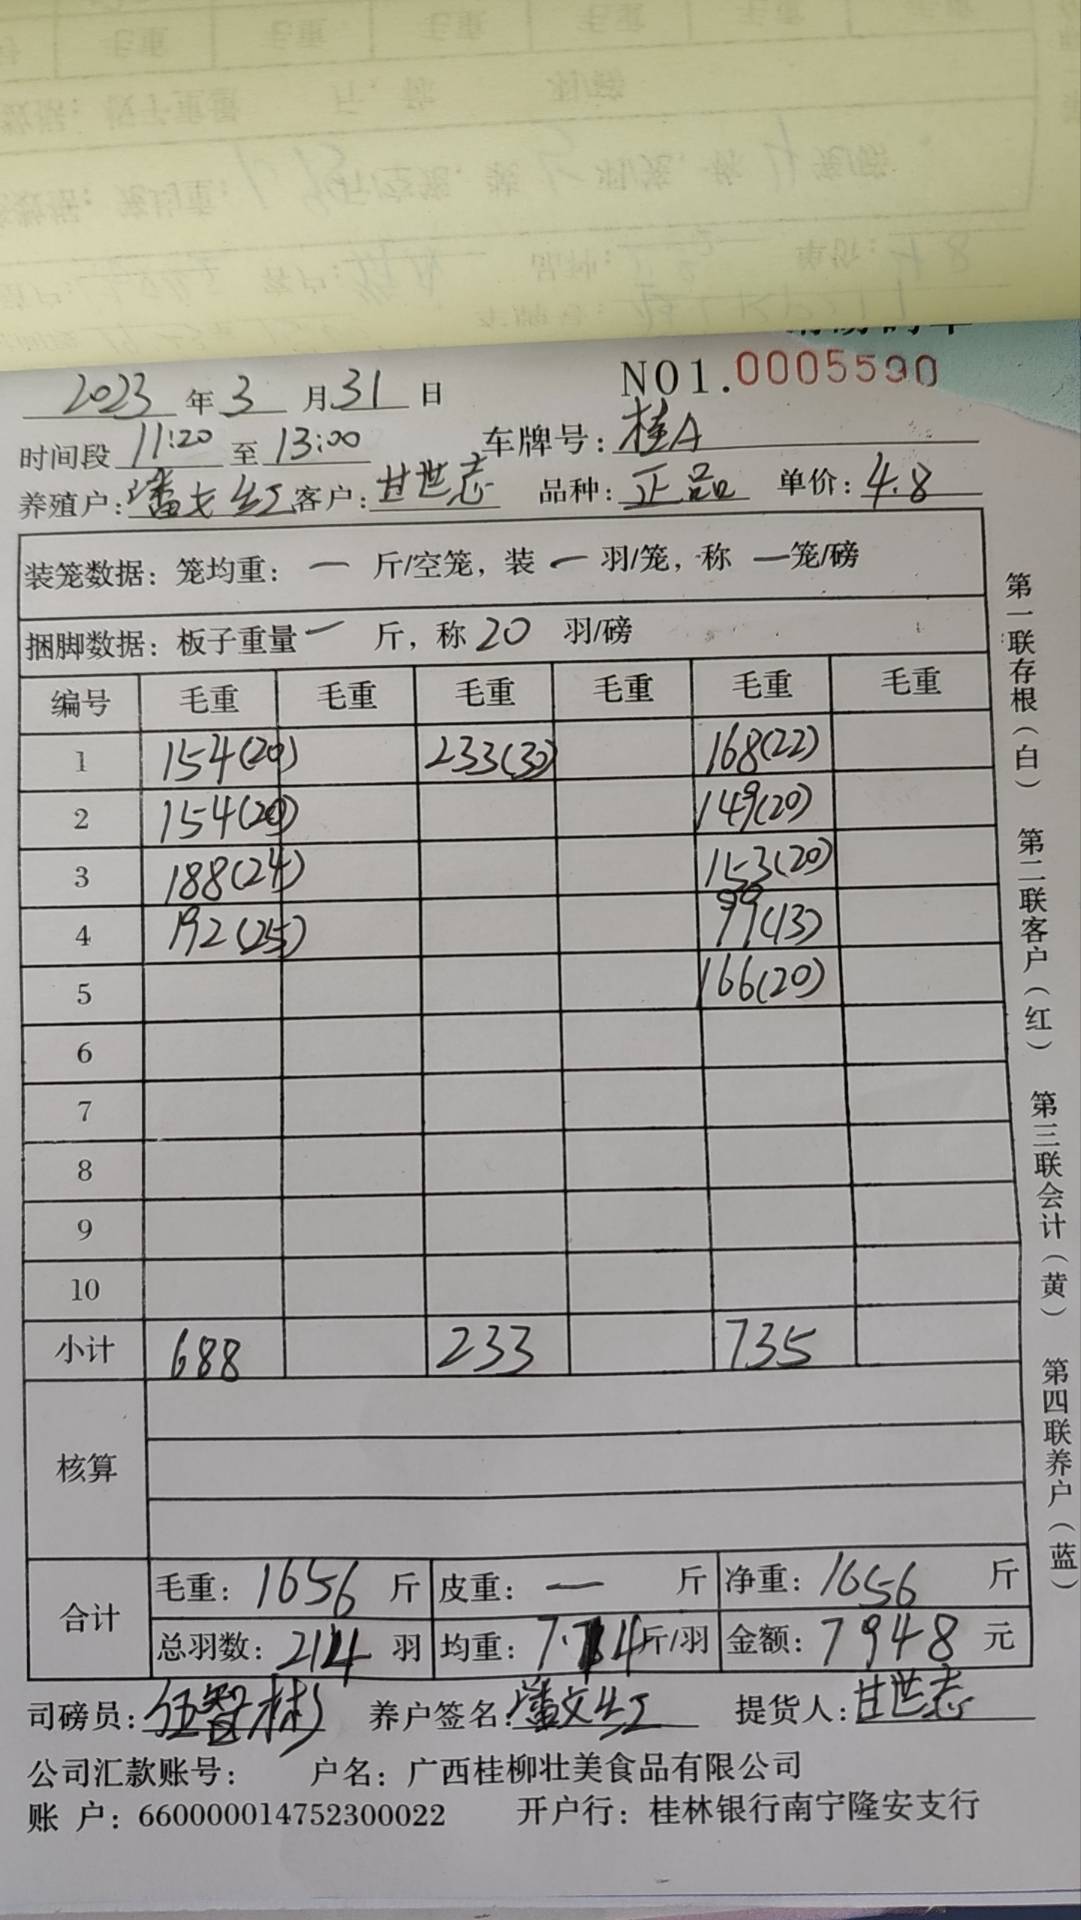 NO1.0005590
2023 年 3 月 31 日
时间段 11:20 至 13:00 车牌号: 桂A
养殖户: 潘文红 客户: 甘世志 品种: 正品 单价: 4.8
装笼数据: 笼均重: 一 斤/空笼, 装 一 羽/笼, 称 一 笼/磅
捆脚数据: 板子重量 一 斤, 称 20 羽/磅
编号 毛重 毛重 毛重 毛重 毛重 毛重
1 154(20) 233(30) 168(22)
2 154(20) 149(20)
3 188(24) 153(20)
4 192(25) 99(13)
5 166(20)
6
7
8
9
10
小计 688 233 735
核算
合计 毛重: 1656 斤 皮重: 一 斤 净重: 1656 斤
总羽数: 214 羽 均重: 7.74 斤/羽 金额: 7948 元
司磅员: 伍智彬 养户签名: 潘文红 提货人: 甘世志
公司汇款账号: 户名: 广西桂柳壮美食品有限公司
账 户: 660000014752300022 开户行: 桂林银行南宁隆安支行
第一联存根(白) 第二联客户(红) 第三联会计(黄) 第四联养户(蓝)